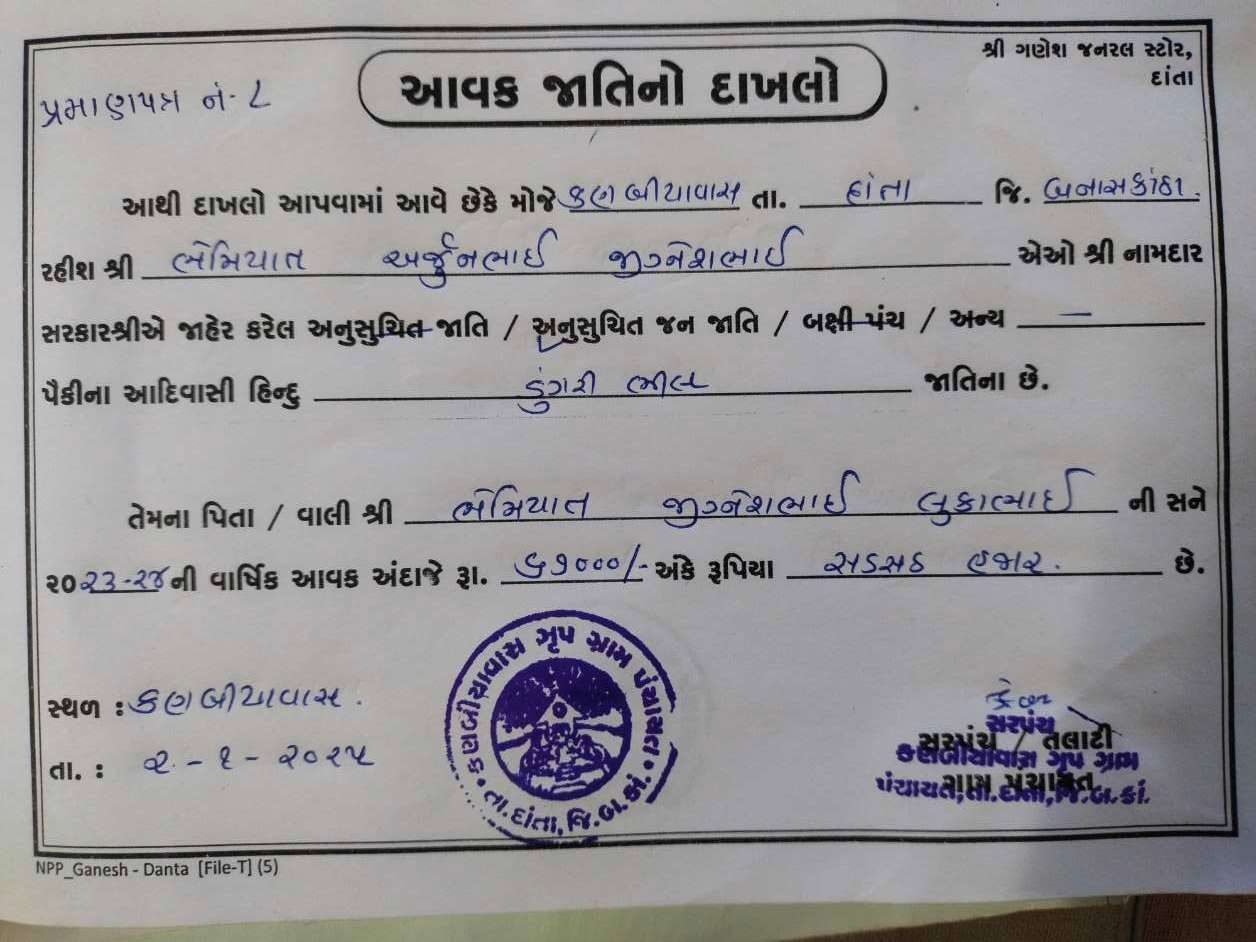 શ્રી ગણેશ જનરલ સ્ટોર,
દાંતા
પ્રમાણપત્ર નં- ૮
આવક જાતિનો દાખલો
આથી દાખલો આપવામાં આવે છેકે મોજે કણબીયાવાસ તા. દાંતા જિ. બનાસકાંઠા.
રહીશ શ્રી ભેમિયાત અર્જુનભાઈ જીગ્નેશભાઈ એઓ શ્રી નામદાર
સરકારશ્રીએ જાહેર કરેલ અનુસુચિત જાતિ / અનુસુચિત જન જાતિ / બક્ષી પંચ / અન્ય —
પૈકીના આદિવાસી હિન્દુ ડુંગરી ભીલ જાતિના છે.
તેમના પિતા / વાલી શ્રી ભેમિયાત જીગ્નેશભાઈ લુકાભાઈ ની સને
૨૦૨૩-૨૪ની વાર્ષિક આવક અંદાજે રૂા. ૬૭૦૦૦/- અંકે રૂપિયા સડસઠ હજાર. છે.
કણબીયાવાસ ગૃપ ગ્રામ પંચાયત
તા.દાંતા, જિ.બ.કાં.
સ્થળ : કણબીયાવાસ.
તા. : ૨ - ૧ - ૨૦૨૫
સરપંચ
સરપંચ / તલાટી
કણબીયાવાસ ગૃપ ગ્રામ
ગ્રામ પંચાયત
પંચાયત,તા.દાંતા,જિ.બ.કાં.
NPP_Ganesh - Danta [File-T] (5)